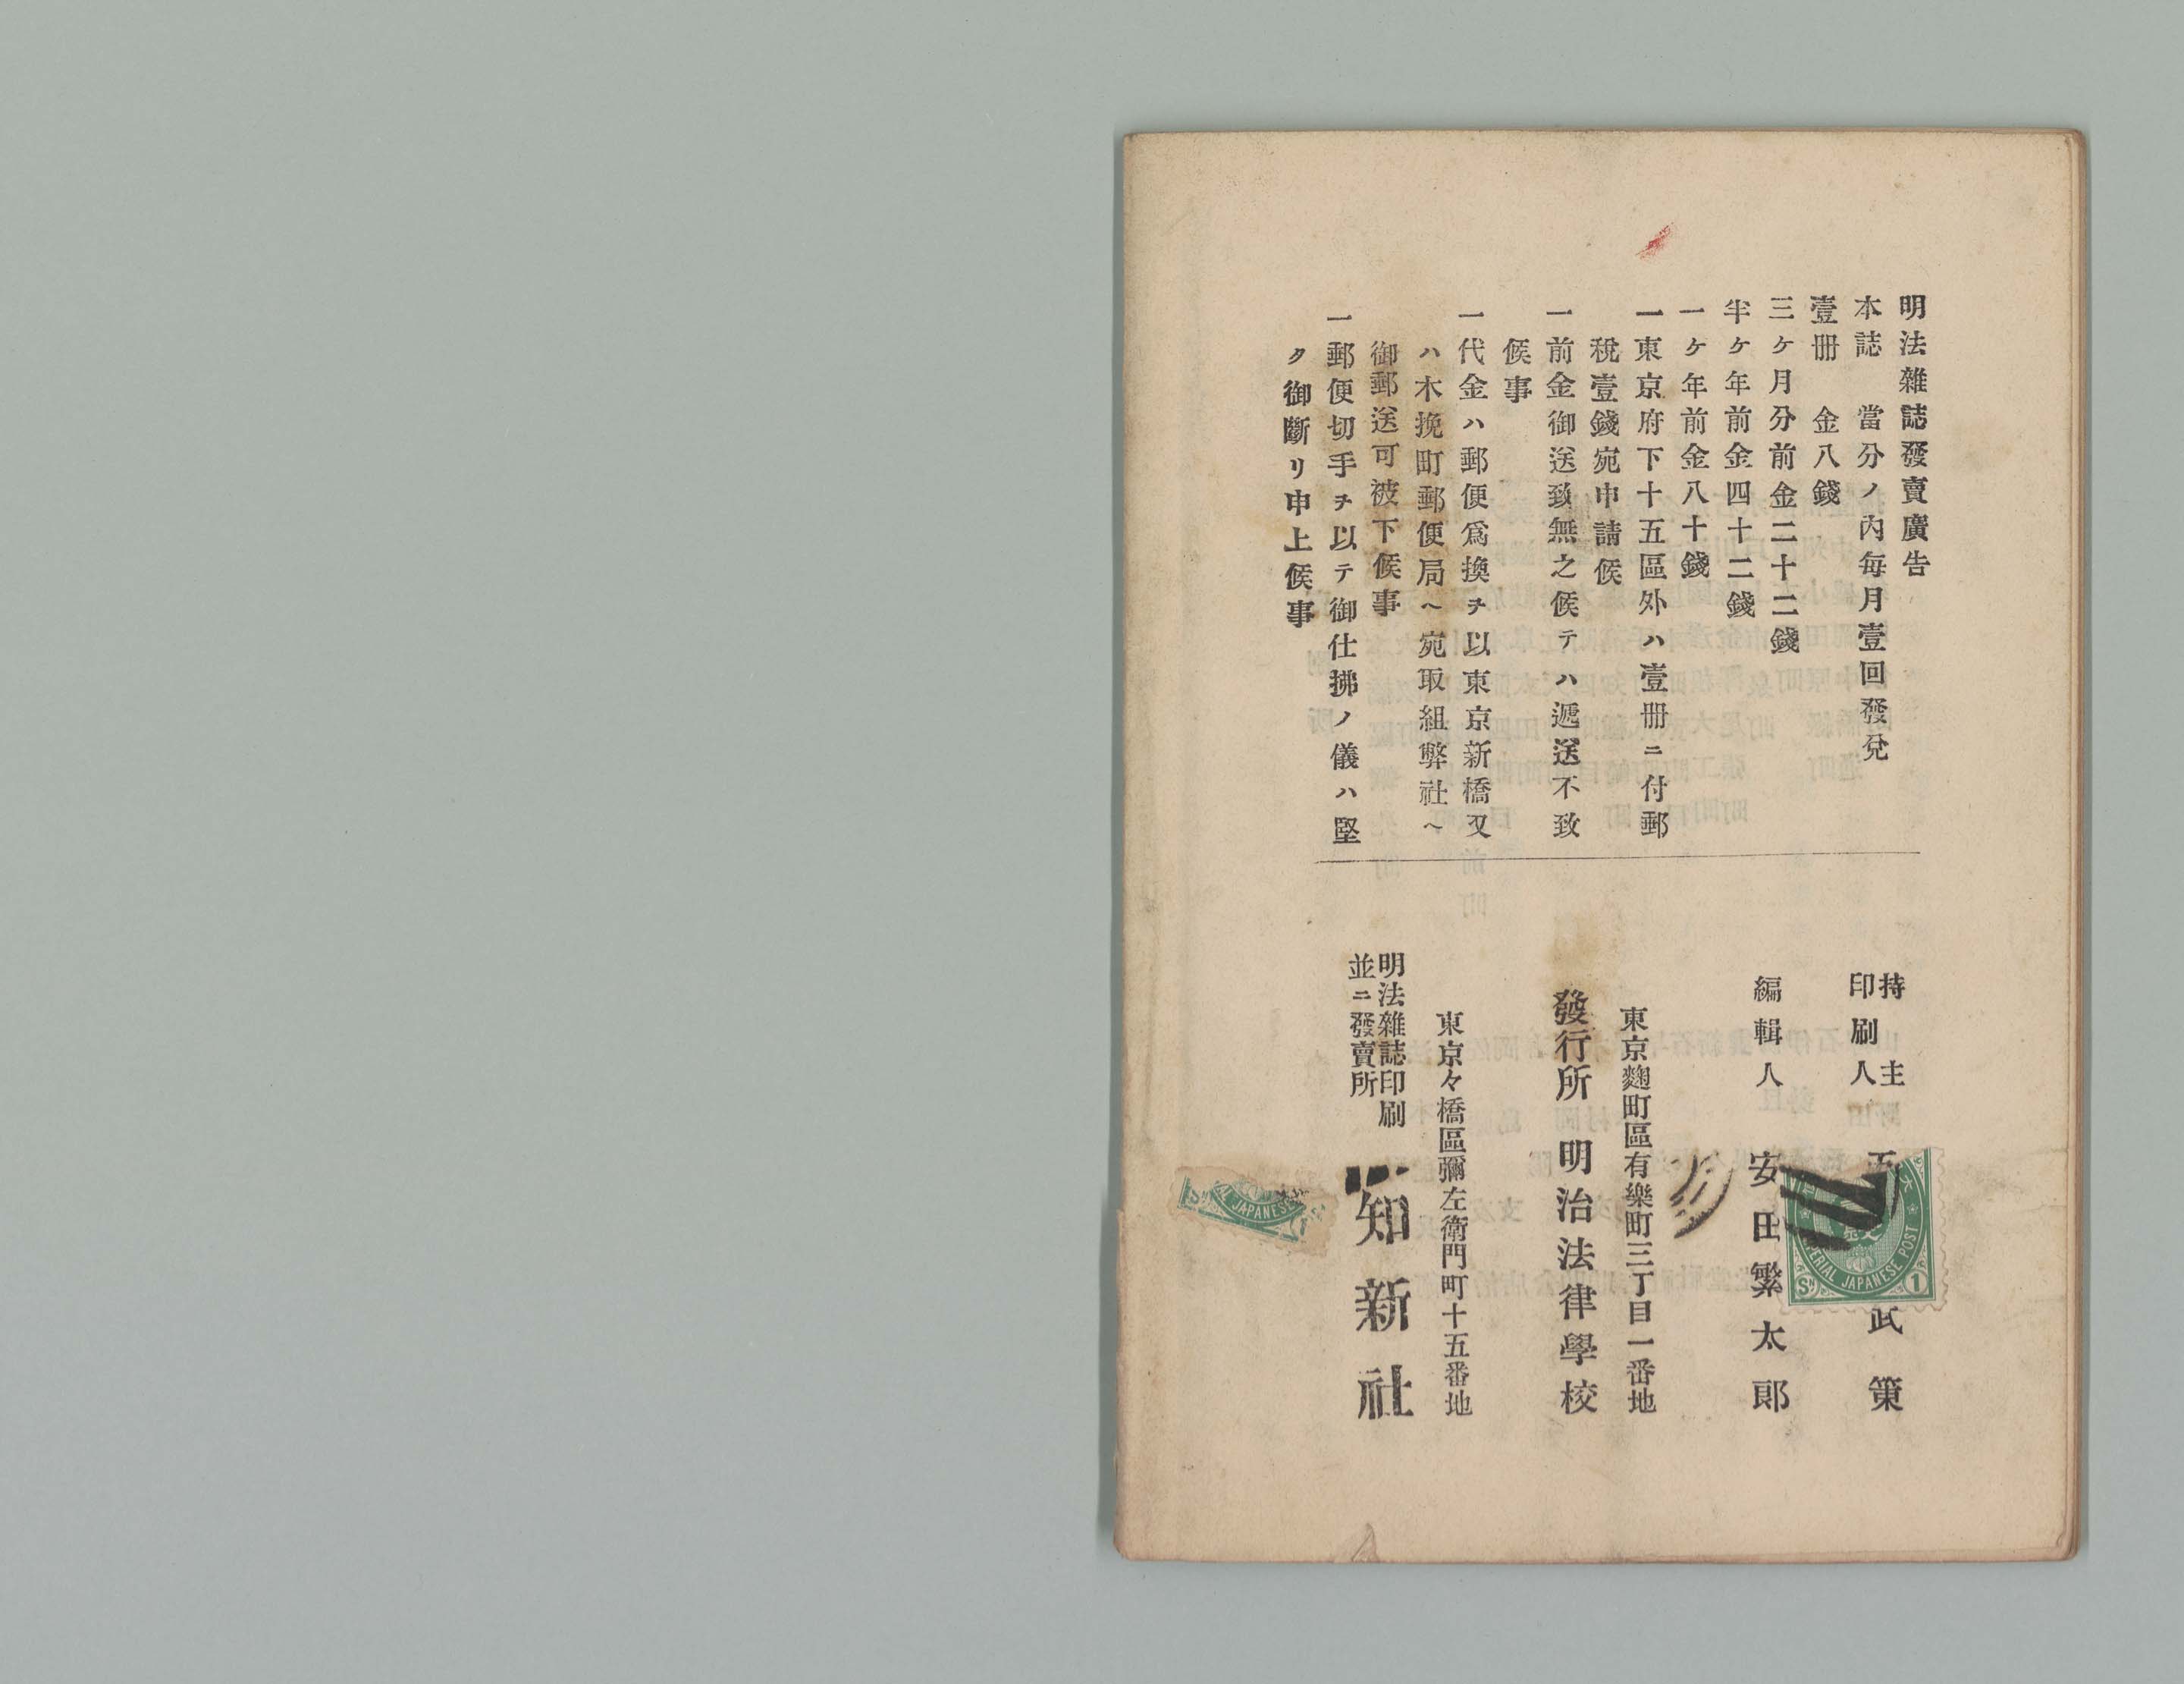 明法雜誌發賣廣告
本誌　當分ノ内毎月壹回發兌
壹冊　金八錢
三ケ月分前金二十二錢
半ケ年前金四十二錢
一ケ年前金八十錢
一東京府下十五區外ハ壹冊ニ付郵
税壹錢宛申請候
一前金御送致無之候テハ遞送不致
候事
一代金ハ郵便爲換ヲ以東京新橋又
ハ木挽町郵便局ヘ宛取組弊社ヘ
御郵送可被下候事
一郵便切手ヲ以テ御仕拂ノ儀ハ堅
ク御斷リ申上候事
持主
印刷人
武策
編輯人　安田繁太郎
東京麴町區有樂町三丁目一番地
發行所　明治法律學校
東京々橋區彌左衛門町十五番地
明法雜誌印刷
並ニ發賣所
知新社
IMPERIAL JAPANESE POST
Sn
1
JAPANESE
Sn